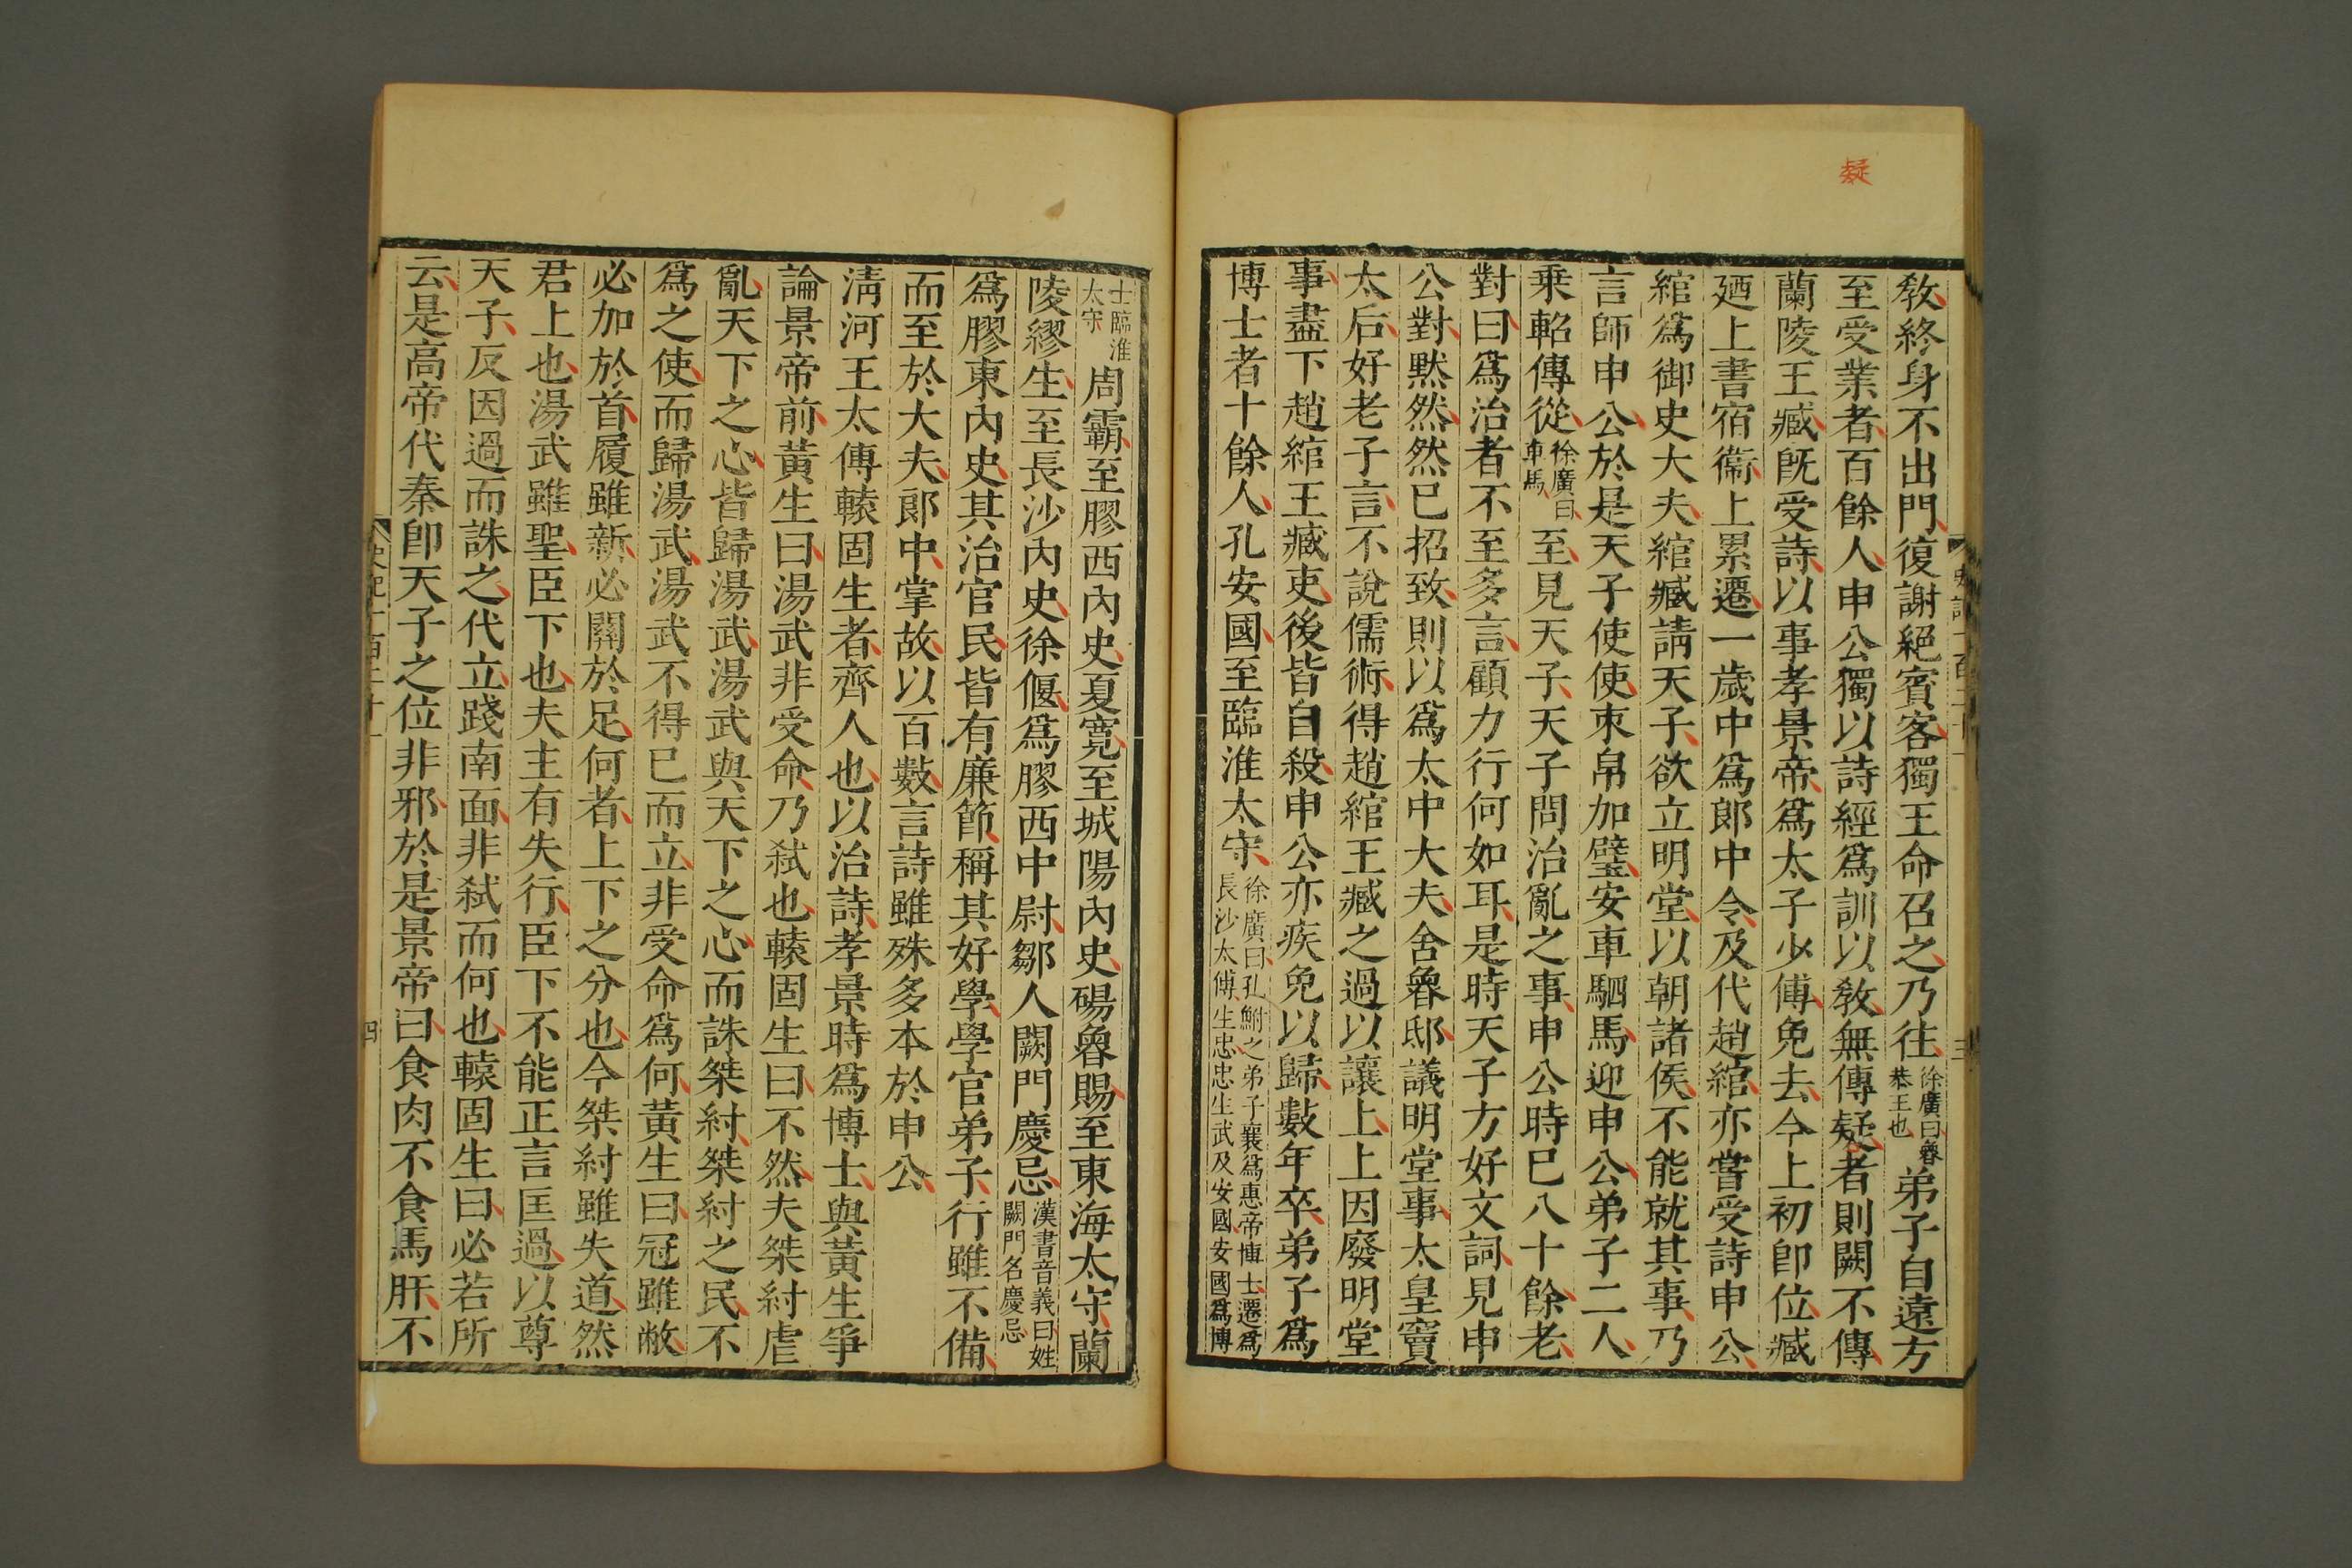 疑
教終身不出門復謝絕賓客獨王命召之乃往徐廣曰魯恭王也弟子自遠方
至受業者百餘人申公獨以詩經爲訓以教無傳疑者則闕不傳
蘭陵王臧旣受詩以事孝景帝爲太子少傅免去今上初卽位臧
廼上書宿衞上累遷一歲中爲郞中令及代趙綰亦嘗受詩申公
綰爲御史大夫綰臧請天子欲立明堂以朝諸侯不能就其事乃
言師申公於是天子使使束帛加璧安車駟馬迎申公弟子二人
乗軺傳從徐廣曰車馬至見天子天子問治亂之事申公時已八十餘老
對曰爲治者不至多言顧力行何如耳是時天子方好文詞見申
公對黙然然已招致則以爲太中大夫舍魯邸議明堂事太皇竇
太后好老子言不說儒術得趙綰王臧之過以讓上上因廢明堂
事盡下趙綰王臧吏後皆自殺申公亦疾免以歸數年卒弟子爲
博士者十餘人孔安國至臨淮太守徐廣曰孔鮒之弟子襄爲惠帝博士遷爲長沙太傅生忠忠生武及安國安國爲博
史記一百二十一
三
士臨淮太守周霸至膠西內史夏寬至城陽內史碭魯賜至東海太守蘭
陵繆生至長沙內史徐偃爲膠西中尉鄒人闕門慶忌漢書音義曰姓闕門名慶忌
爲膠東內史其治官民皆有廉節稱其好學學官弟子行雖不備
而至於大夫郞中掌故以百數言詩雖殊多本於申公
淸河王太傅轅固生者齊人也以治詩孝景時爲博士與黃生爭
論景帝前黃生曰湯武非受命乃弒也轅固生曰不然夫桀紂虐
亂天下之心皆歸湯武湯武與天下之心而誅桀紂桀紂之民不
爲之使而歸湯武湯武不得已而立非受命爲何黃生曰冠雖敝
必加於首履雖新必關於足何者上下之分也今桀紂雖失道然
君上也湯武雖聖臣下也夫主有失行臣下不能正言匡過以尊
天子反因過而誅之代立踐南面非弒而何也轅固生曰必若所
云是高帝代秦卽天子之位非邪於是景帝曰食肉不食馬肝不
史記一百二十一
四